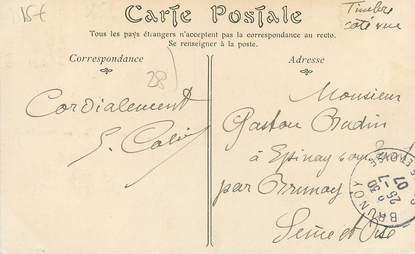 15f
Carte Postale
Timbre
côté vue
Tous les pays étrangers n'acceptent pas la correspondance au recto.
Se renseigner à la poste.
Correspondance
Adresse
28
Cordialement
Monsieur
Gaston Badin
à Epinay sous
par Brunoy
Seine et Oise
BRUNOY
25-7
07